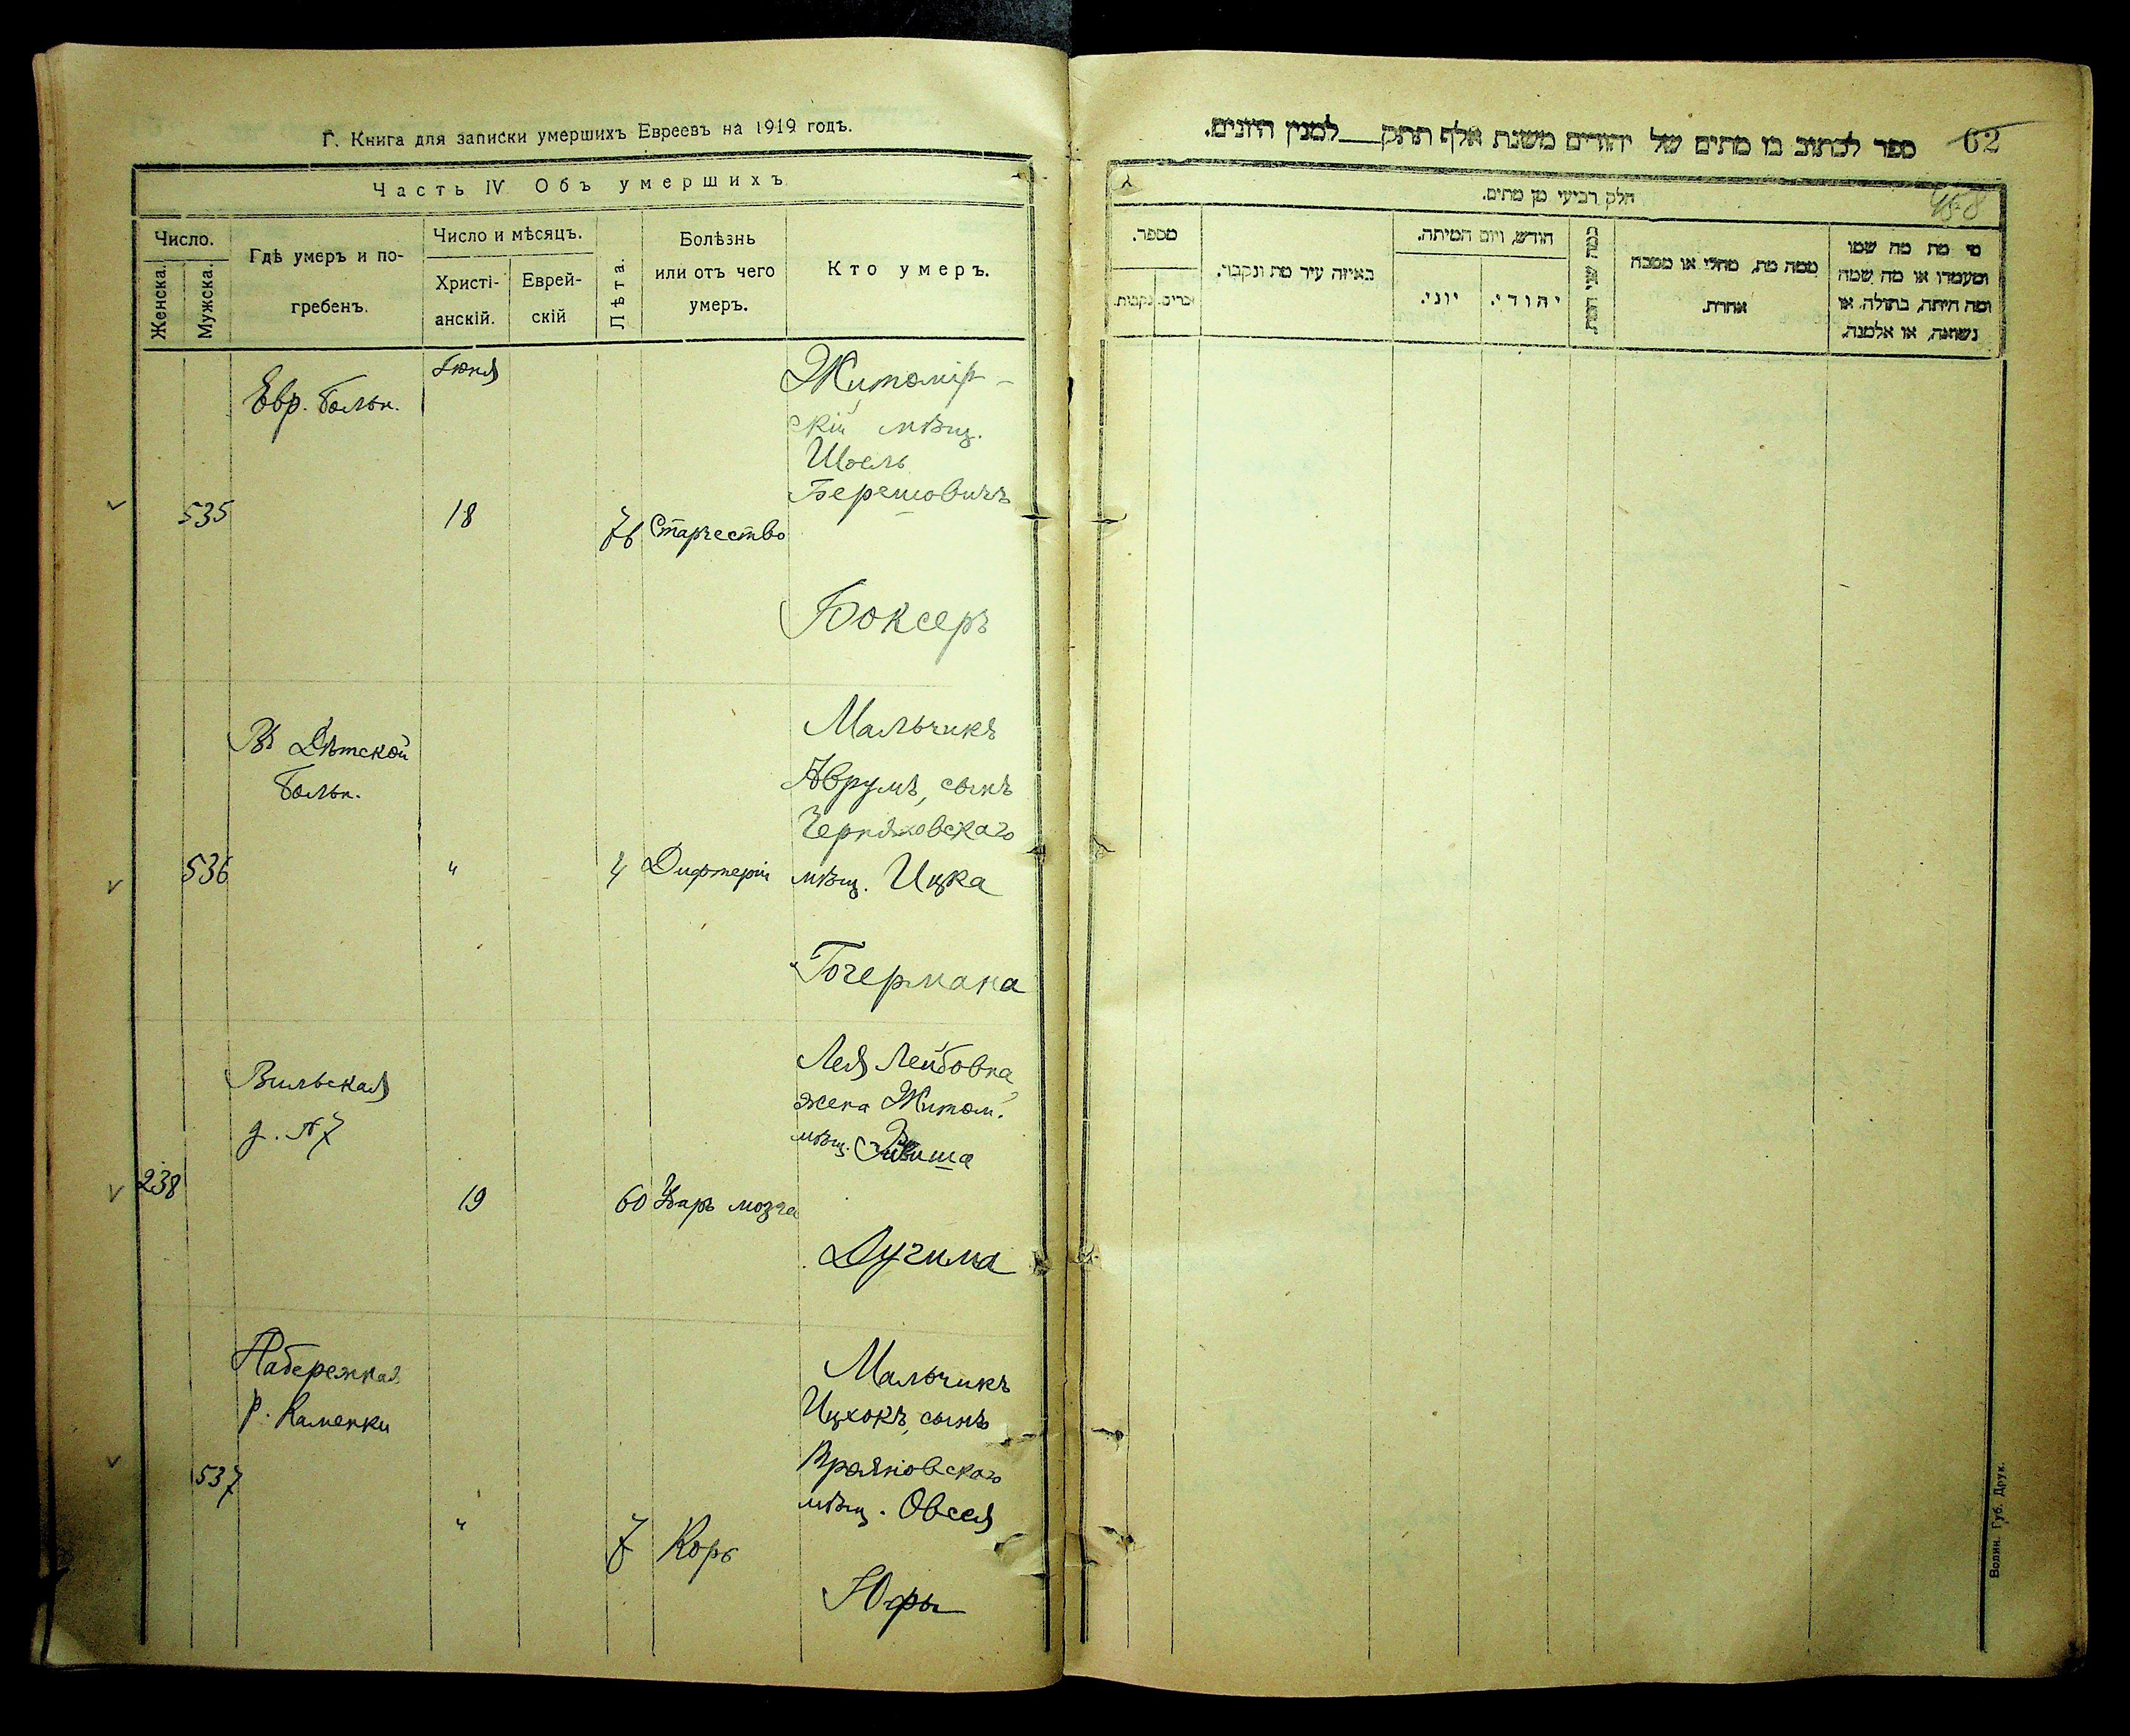 Г. Книга для записки умершихъ Евреевъ на 1919 годъ.
Часть IV Объ умершихъ
Число.
Женска.
Мужска.
Гдѣ умеръ и по-
гребенъ.
Число и мѣсяцъ.
Христі-
анскій.
Еврей-
скій
Лѣта.
Болѣзнь
или отъ чего
умеръ.
Кто умеръ.
Евр. больн.
Іюня
Житомір-
скій мѣщ.
Шоель
Берешовичъ
535
18
76
Старчество
Боксеръ
Въ Дѣтской
больн.
Мальчикъ
Аврумъ, сынъ
Черняховскаго
536
"
4
Дифтерія
мѣщ. Ицка
Гочермана
Вильская
д. № 7
Лея Лейбовна
жена Житом.
мѣщ.
238
19
60
Удар мозга
Дугима
Набережная
р. Каменки
Мальчикъ
Ицхокъ, сынъ
мѣщ. Овсея
537
"
7
Корь
Юфы
ספר לכתוב בו מתים של יהודים משנת אלף תתק___למנין היונים.
62
458
חלק רביעי מן מתים.
מספר.
זכרים.
נקבות.
באיזה עיר מת ונקבר.
חודש, ויום המיתה.
יוני.
יהודי.
כמה שני המת
ממה מת, מחלי או מסבה
אחרת.
מי מת מה שמו
ומעמדו או מה שמה
ומה היתה, בתולה או
נשואה, או אלמנה.
Волин. Губ. Друк.